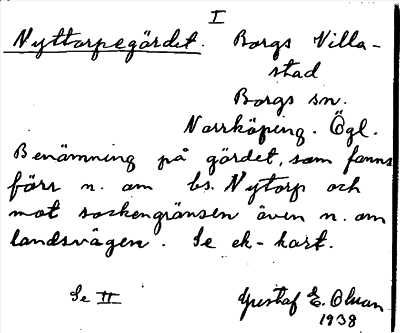 I
Nyttorpegärdet. Borgs Villa-
stad
Borgs sn.
Norrköping. Ögl.
Benämning på gärdet, som fanns
förr n. om bs. Nytorp och
mot sockengränsen även n. om
landsvägen. Se ek-kart.
Se II Gustaf E. Olsson
1938